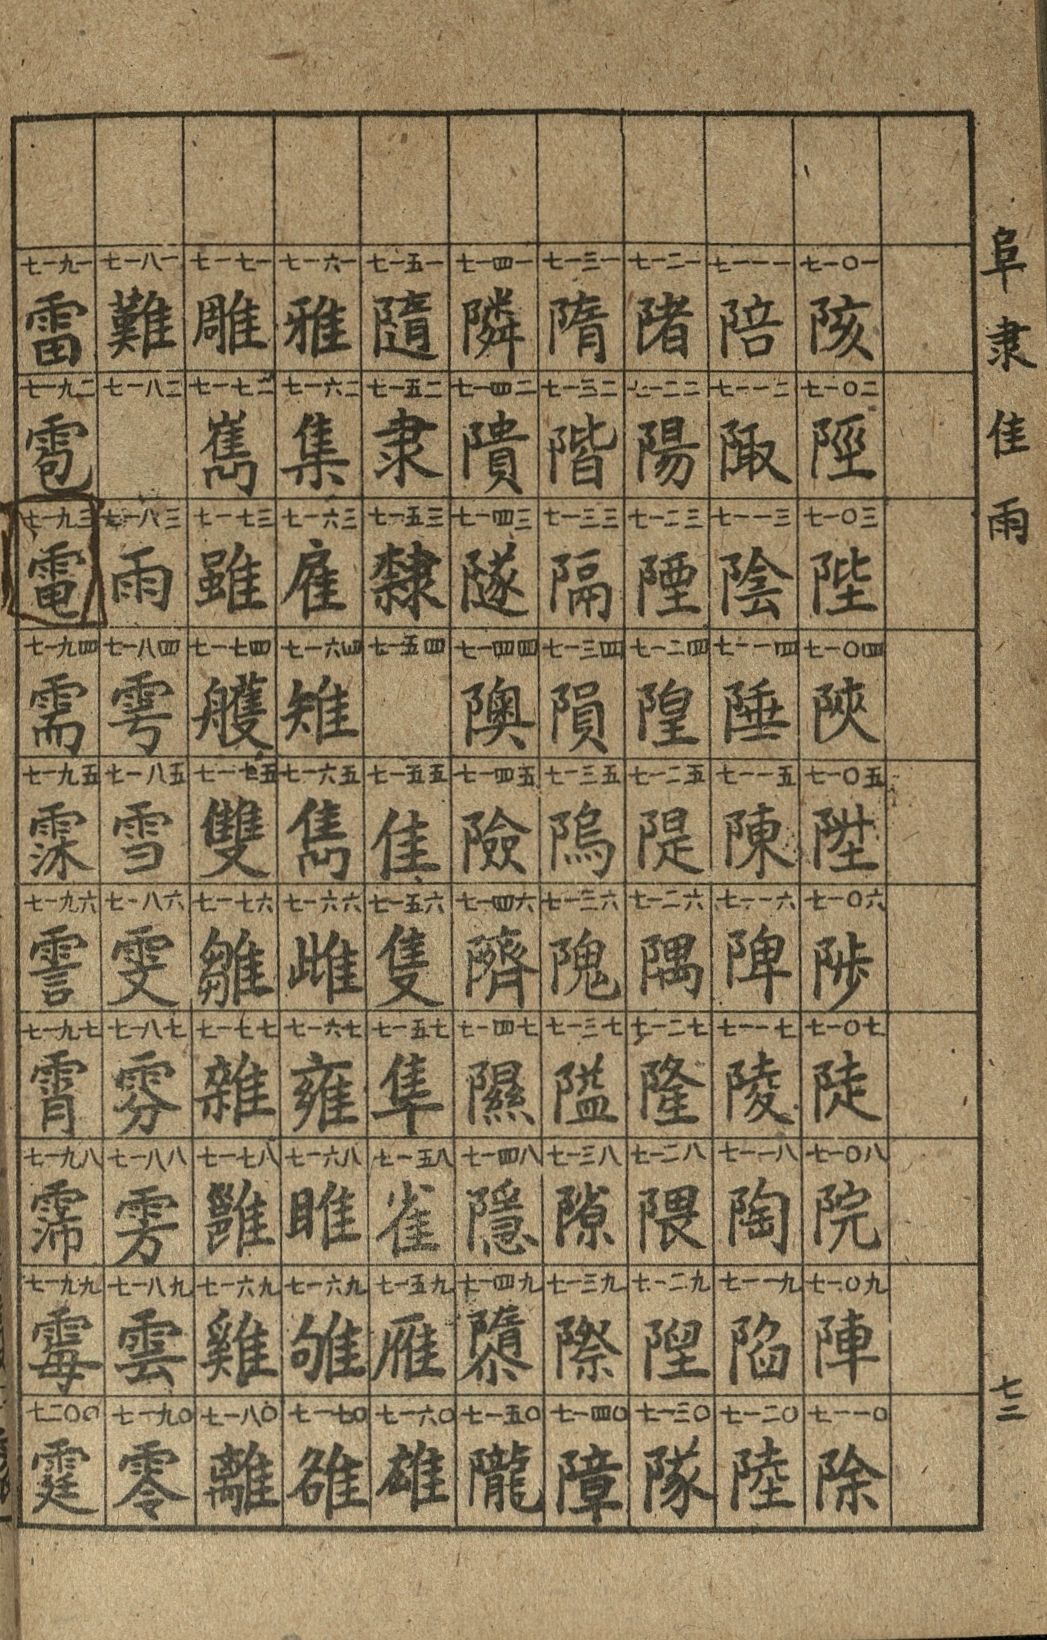 阜隶隹雨
七二
七一〇一 陔
七一〇二 陘
七一〇三 陛
七一〇四 陝
七一〇五 陞
七一〇六 陟
七一〇七 陡
七一〇八 院
七一〇九 陣
七一一〇 除
七一一一 陪
七一一二 陬
七一一三 陰
七一一四 陲
七一一五 陳
七一一六 陴
七一一七 陵
七一一八 陶
七一一九 陷
七一二〇 陸
七一二一 陼
七一二二 陽
七一二三 陻
七一二四 隍
七一二五 隄
七一二六 隅
七一二七 隆
七一二八 隈
七一二九 隉
七一三〇 隊
七一三一 隋
七一三二 階
七一三三 隔
七一三四 隕
七一三五 隖
七一三六 隗
七一三七 隘
七一三八 隙
七一三九 際
七一四〇 障
七一四一 隣
七一四二 隤
七一四三 隧
七一四四 隩
七一四五 險
七一四六 隮
七一四七 隰
七一四八 隱
七一四九 隳
七一五〇 隴
七一五一 隨
七一五二 隶
七一五三 隸
七一五四
七一五五 隹
七一五六 隻
七一五七 隼
七一五八 雀
七一五九 雁
七一六〇 雄
七一六一 雅
七一六二 集
七一六三 雇
七一六四 雉
七一六五 雋
七一六六 雌
七一六七 雍
七一六八 雎
七一六九 雊
七一七〇 雒
七一七一 雕
七一七二 雟
七一七三 雖
七一七四 雘
七一七五 雙
七一七六 雛
七一七七 雜
七一七八 雝
七一六九 雞
七一八〇 離
七一八一 難
七一八二
七一八三 雨
七一八四 雩
七一八五 雪
七一八六 雯
七一八七 雰
七一八八 雱
七一八九 雲
七一九〇 零
七一九一 雷
七一九二 雹
七一九三 電
七一九四 需
七一九五 霂
七一九六 霅
七一九七 霄
七一九八 霈
七一九九 霉
七二〇〇 霆